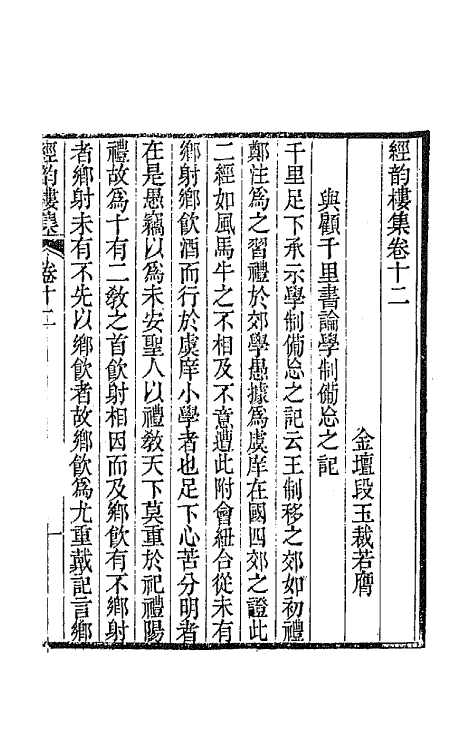 經韵樓集卷十二
金壇段玉裁若膺
與顧千里書論學制備忘之記
千里足下承示學制備忘之記云王制移之郊如初禮
鄭注爲之習禮於郊學愚據爲虞庠在國四郊之證此
二經如風馬牛之不相及不意遭此附會紐合從未有
鄉射鄉飮酒而行於虞庠小學者也足下心苦分明者
在是愚竊以爲未安聖人以禮敎天下莫重於祀禮陽
禮故爲十有二敎之首飮射相因而及鄉飮有不鄉射
者鄉射未有不先以鄉飮者故鄉飮爲尤重戴記言鄉
經韵樓集
卷十二
一